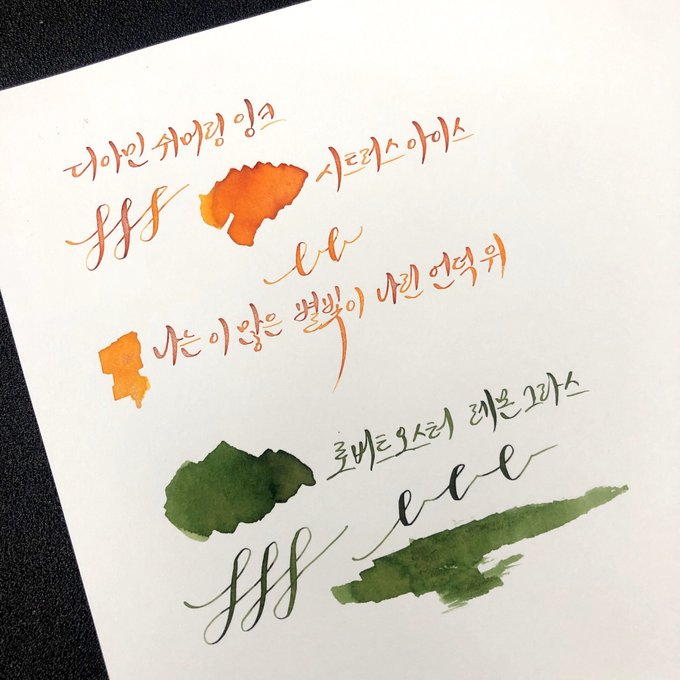 디아민 쉬머링 잉크
시트러스 아이스
fff
ee
나는 이 많은 별빛이 나린 언덕 위
로버트 오스터 레몬그라스
eee
fff